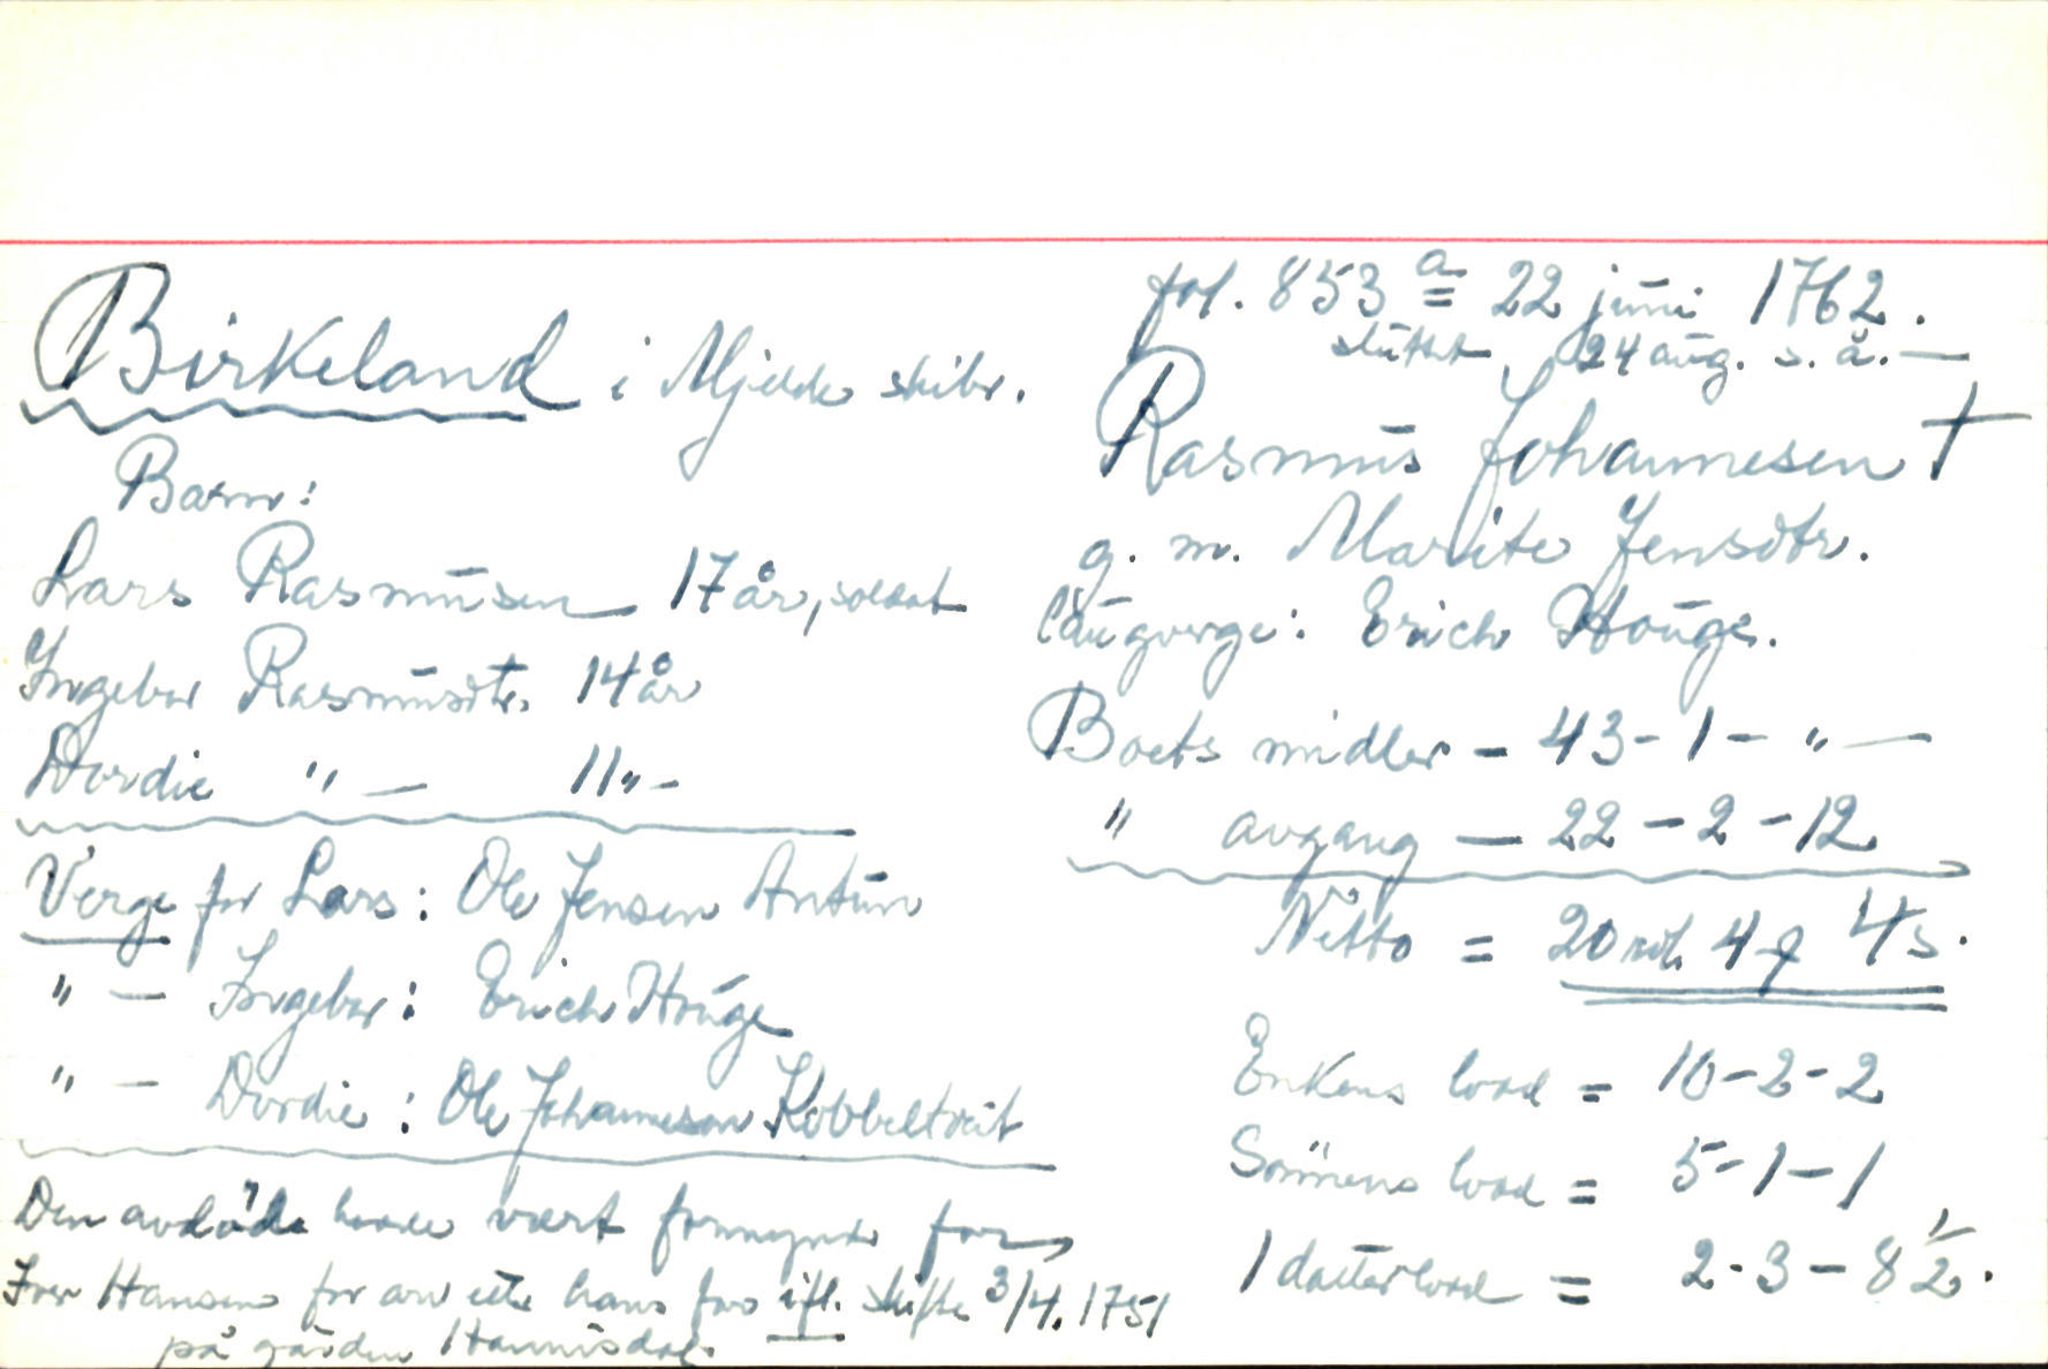 Birkeland i Mjelde skibr.
Barn:
Lars Rasmussen 17 år, soldat
Ingebor Rasmusdtr. 14 år
Dordie " — 11 " -
Verge for Lars: Ole Jensen Antun
" — Ingebor: Erich Houge
" — Dordie: Ole Johannesen Kobbeltveit
Den avdöde hadde vært formynder for
Iver Hansen for arv etter hans far ifl. skifte 3/4. 1751
på gården Hannisdal.
fol. 853 a = 22 juni 1762.
sluttet 24 aug. s. å. —
Rasmus Johannesen †
g. m. Marite Jensdtr.
laugverge: Erich Houge.
Boets midler - 43 - 1 - " —
" avgang — 22 - 2 - 12
Netto = 20 rd. 4 q 4 s.
Enkens lood = 10 - 2 - 2
Sønnens lood = 5 - 1 - 1
1 datterlood = 2 - 3 - 8 1/2.